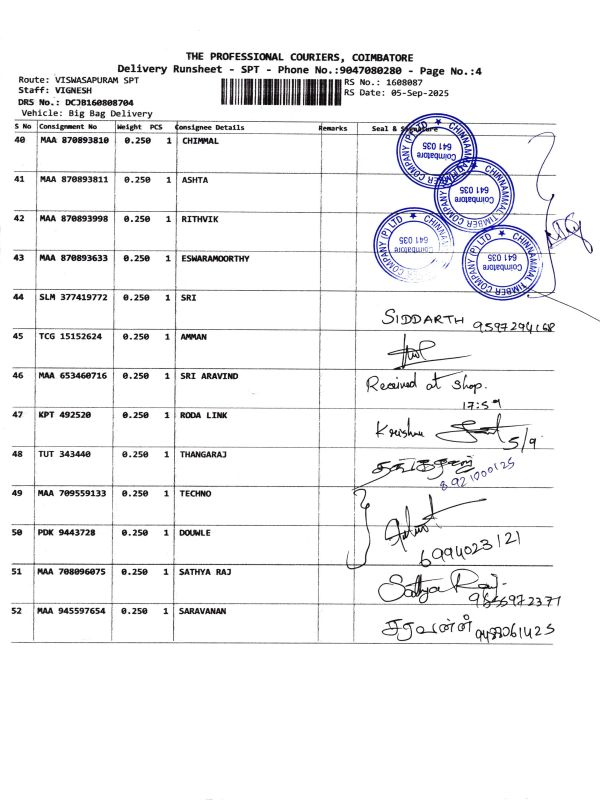 THE PROFESSIONAL COURIERS, COIMBATORE
Delivery Runsheet - SPT - Phone No.:9047080280 - Page No.:4
Route: VISWASAPURAM SPT
RS No.: 1608087
Staff: VIGNESH
RS Date: 05-Sep-2025
DRS No.: DCJB160808704
Vehicle: Big Bag Delivery
S No Consignment No Weight PCS Consignee Details Remarks Seal & Signature
40 MAA 870893810 0.250 1 CHIMMAL
CHINNAMMAL TIMBER COMPANY (P) LTD ★ Coimbatore 641 035
41 MAA 870893811 0.250 1 ASHTA
CHINNAMMAL TIMBER COMPANY (P) LTD ★ Coimbatore 641 035
42 MAA 870893998 0.250 1 RITHVIK
CHINNAMMAL TIMBER COMPANY (P) LTD ★ Coimbatore 641 035
43 MAA 870893633 0.250 1 ESWARAMOORTHY
CHINNAMMAL TIMBER COMPANY (P) LTD ★ Coimbatore 641 035
44 SLM 377419772 0.250 1 SRI SIDDARTH 9597294168
45 TCG 15152624 0.250 1 AMMAN
46 MAA 653460716 0.250 1 SRI ARAVIND Received at shop.
17:59
47 KPT 492520 0.250 1 RODA LINK Krishna 5/9
48 TUT 343440 0.250 1 THANGARAJ தங்கராஜ்
8921000125
49 MAA 709559133 0.250 1 TECHNO
50 PDK 9443728 0.250 1 DOUWLE 6994023121
51 MAA 708096075 0.250 1 SATHYA RAJ Sathya Raj.
9655972371
52 MAA 945597654 0.250 1 SARAVANAN சரவணன்